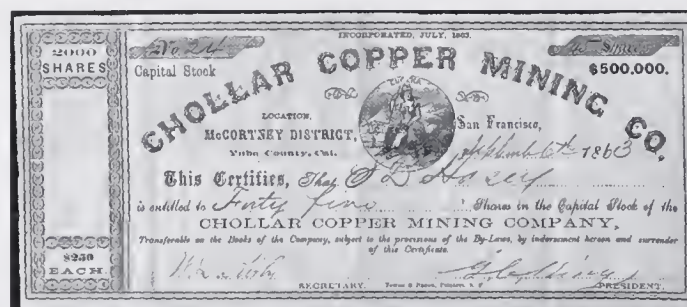 INCORPORATED, JULY, 1863.
2000 SHARES
No 24
Capital Stock
$500,000.
CHOLLAR COPPER MINING CO.
EUREKA
LOCATION,
McCORTNEY DISTRICT,
Yuba County, Cal.
San Francisco,
September 6th 1863
This Certifies, That
is entitled to Forty five Shares in the Capital Stock of the
CHOLLAR COPPER MINING COMPANY,
Transferable on the Books of the Company, subject to the provisions of the By-Laws, by indorsement hereon and surrender
of this Certificate.
$250 EACH.
SECRETARY.
PRESIDENT.